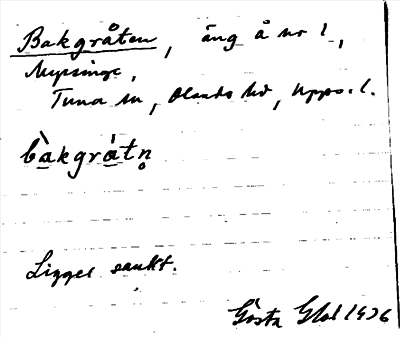 Bakgråten, äng å nr 1,
Mysinge,
Tuna sn, Olands hd, Upps. l.
bàkgrát̥n
Ligger sankt.
Gösta 1936